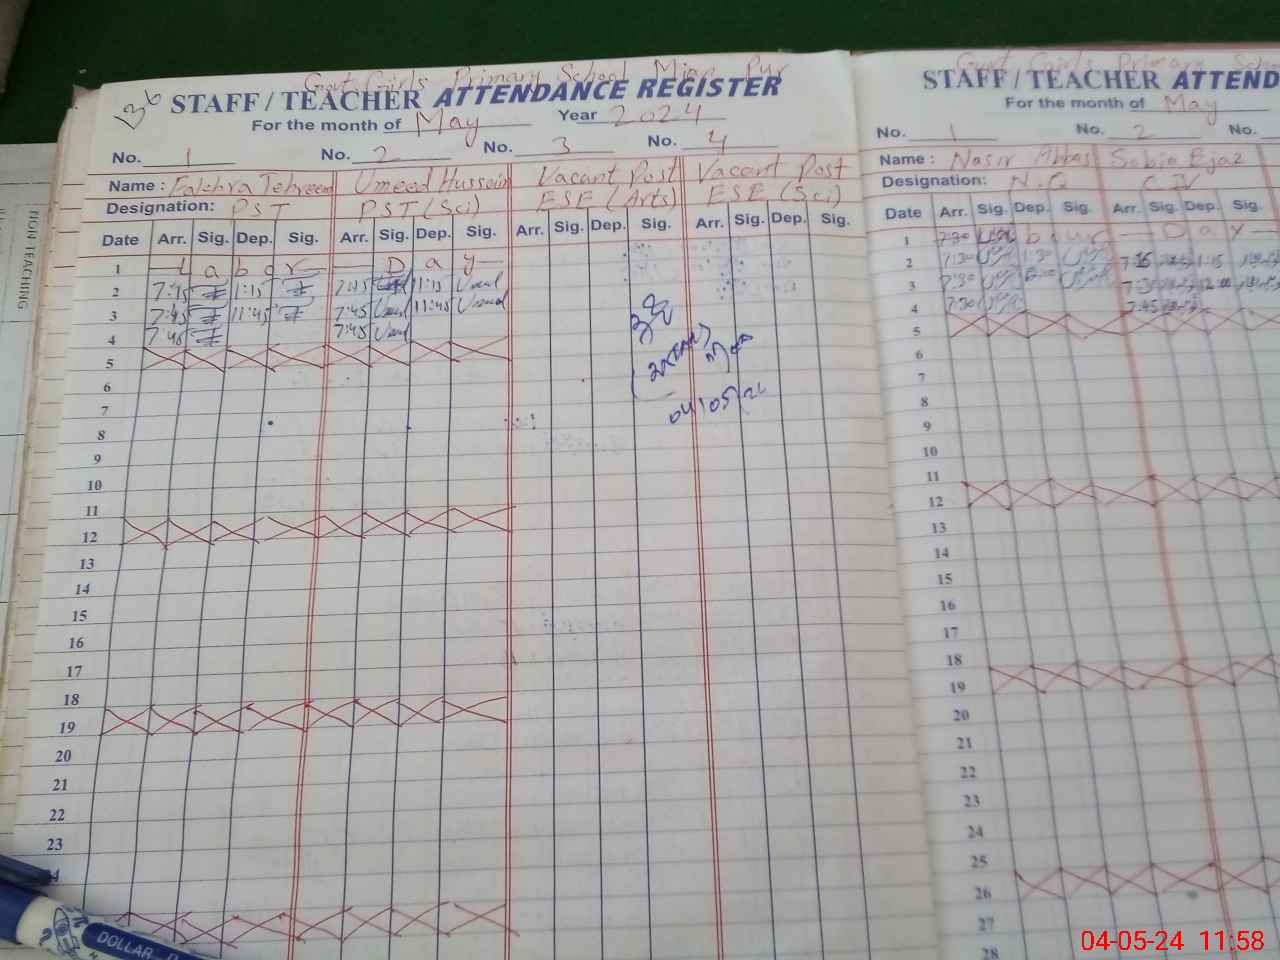 Govt Girls Primary School Mian Pur
STAFF / TEACHER ATTENDANCE REGISTER
For the month of May Year 2024
No. 1 No. 2 No. 3 No. 4
Name : Fakhra Tehreem Umeed Hussain Vacant Post Vacant Post
Designation: PST PST (Sci) ESE (Arts) ESE (Sci)
Date Arr. Sig. Dep. Sig. Arr. Sig. Dep. Sig. Arr. Sig. Dep. Sig. Arr. Sig. Dep. Sig.
1 Labor Day
2 7:45 1:15 7:45 11:15
3 7:45 11:45 7:45 11:45
4 7:45 7:45
5
6
7
8
9
10
11
12
13
14
15
16
17
18
19
20
21
22
23
04/05/24
Govt Girls Primary
STAFF / TEACHER ATTEND
For the month of May
No. 1 No. 2 No.
Name : Nasir Abbas Sabia Ejaz
Designation: N.Q C IV
Date Arr. Sig. Dep. Sig. Arr. Sig. Dep. Sig.
1 7:30 Day
2 7:30 1:30 1:15
3 7:30 12:00
4 7:30 7:45
5
6
7
8
9
10
11
12
13
14
15
16
17
18
19
20
21
22
23
24
25
26
27
28
NON-TEACHING
DOLLAR
04-05-24 11:58